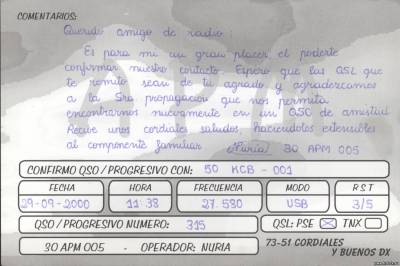 COMENTARIOS:
Querido amigo de radio:
Es para mi un gran placer el poderte
confirmar nuestro contacto. Espero que las QSL que
te remito sean de tu agrado y agradezcamos
a la Sra. propagacion que nos permita
encontrarnos nuevamente en un QSO de amistad
Recibe unos cordiales saludos, haciendolos extensibles
al componente familiar Nuria 30 APM 005
CONFIRMO QSO / PROGRESIVO CON: 50 KCB - 001
FECHA HORA FRECUENCIA MODO R S T
29-09-2000 11:38 27.580 USB 3/5
QSO / PROGRESIVO NUMERO: 315 QSL: PSE TNX
30 APM 005 - OPERADOR: NURIA
73-51 CORDIALES
Y BUENOS DX